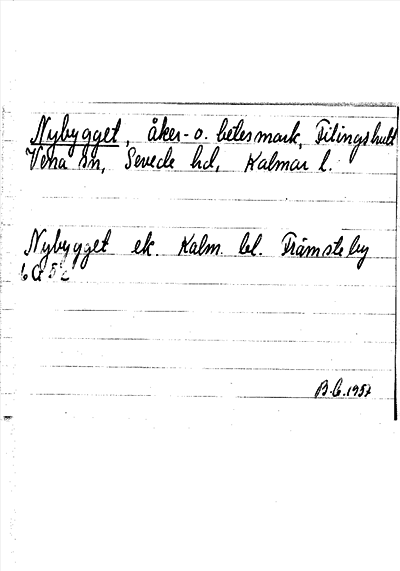 Nybygget, åker- o. betesmark, Filingshult
Vena sn, Sevede hd, Kalmar l.
Nybygget ek. Kalm. bl. Främsteby
6 G 5 c
B.G. 1957